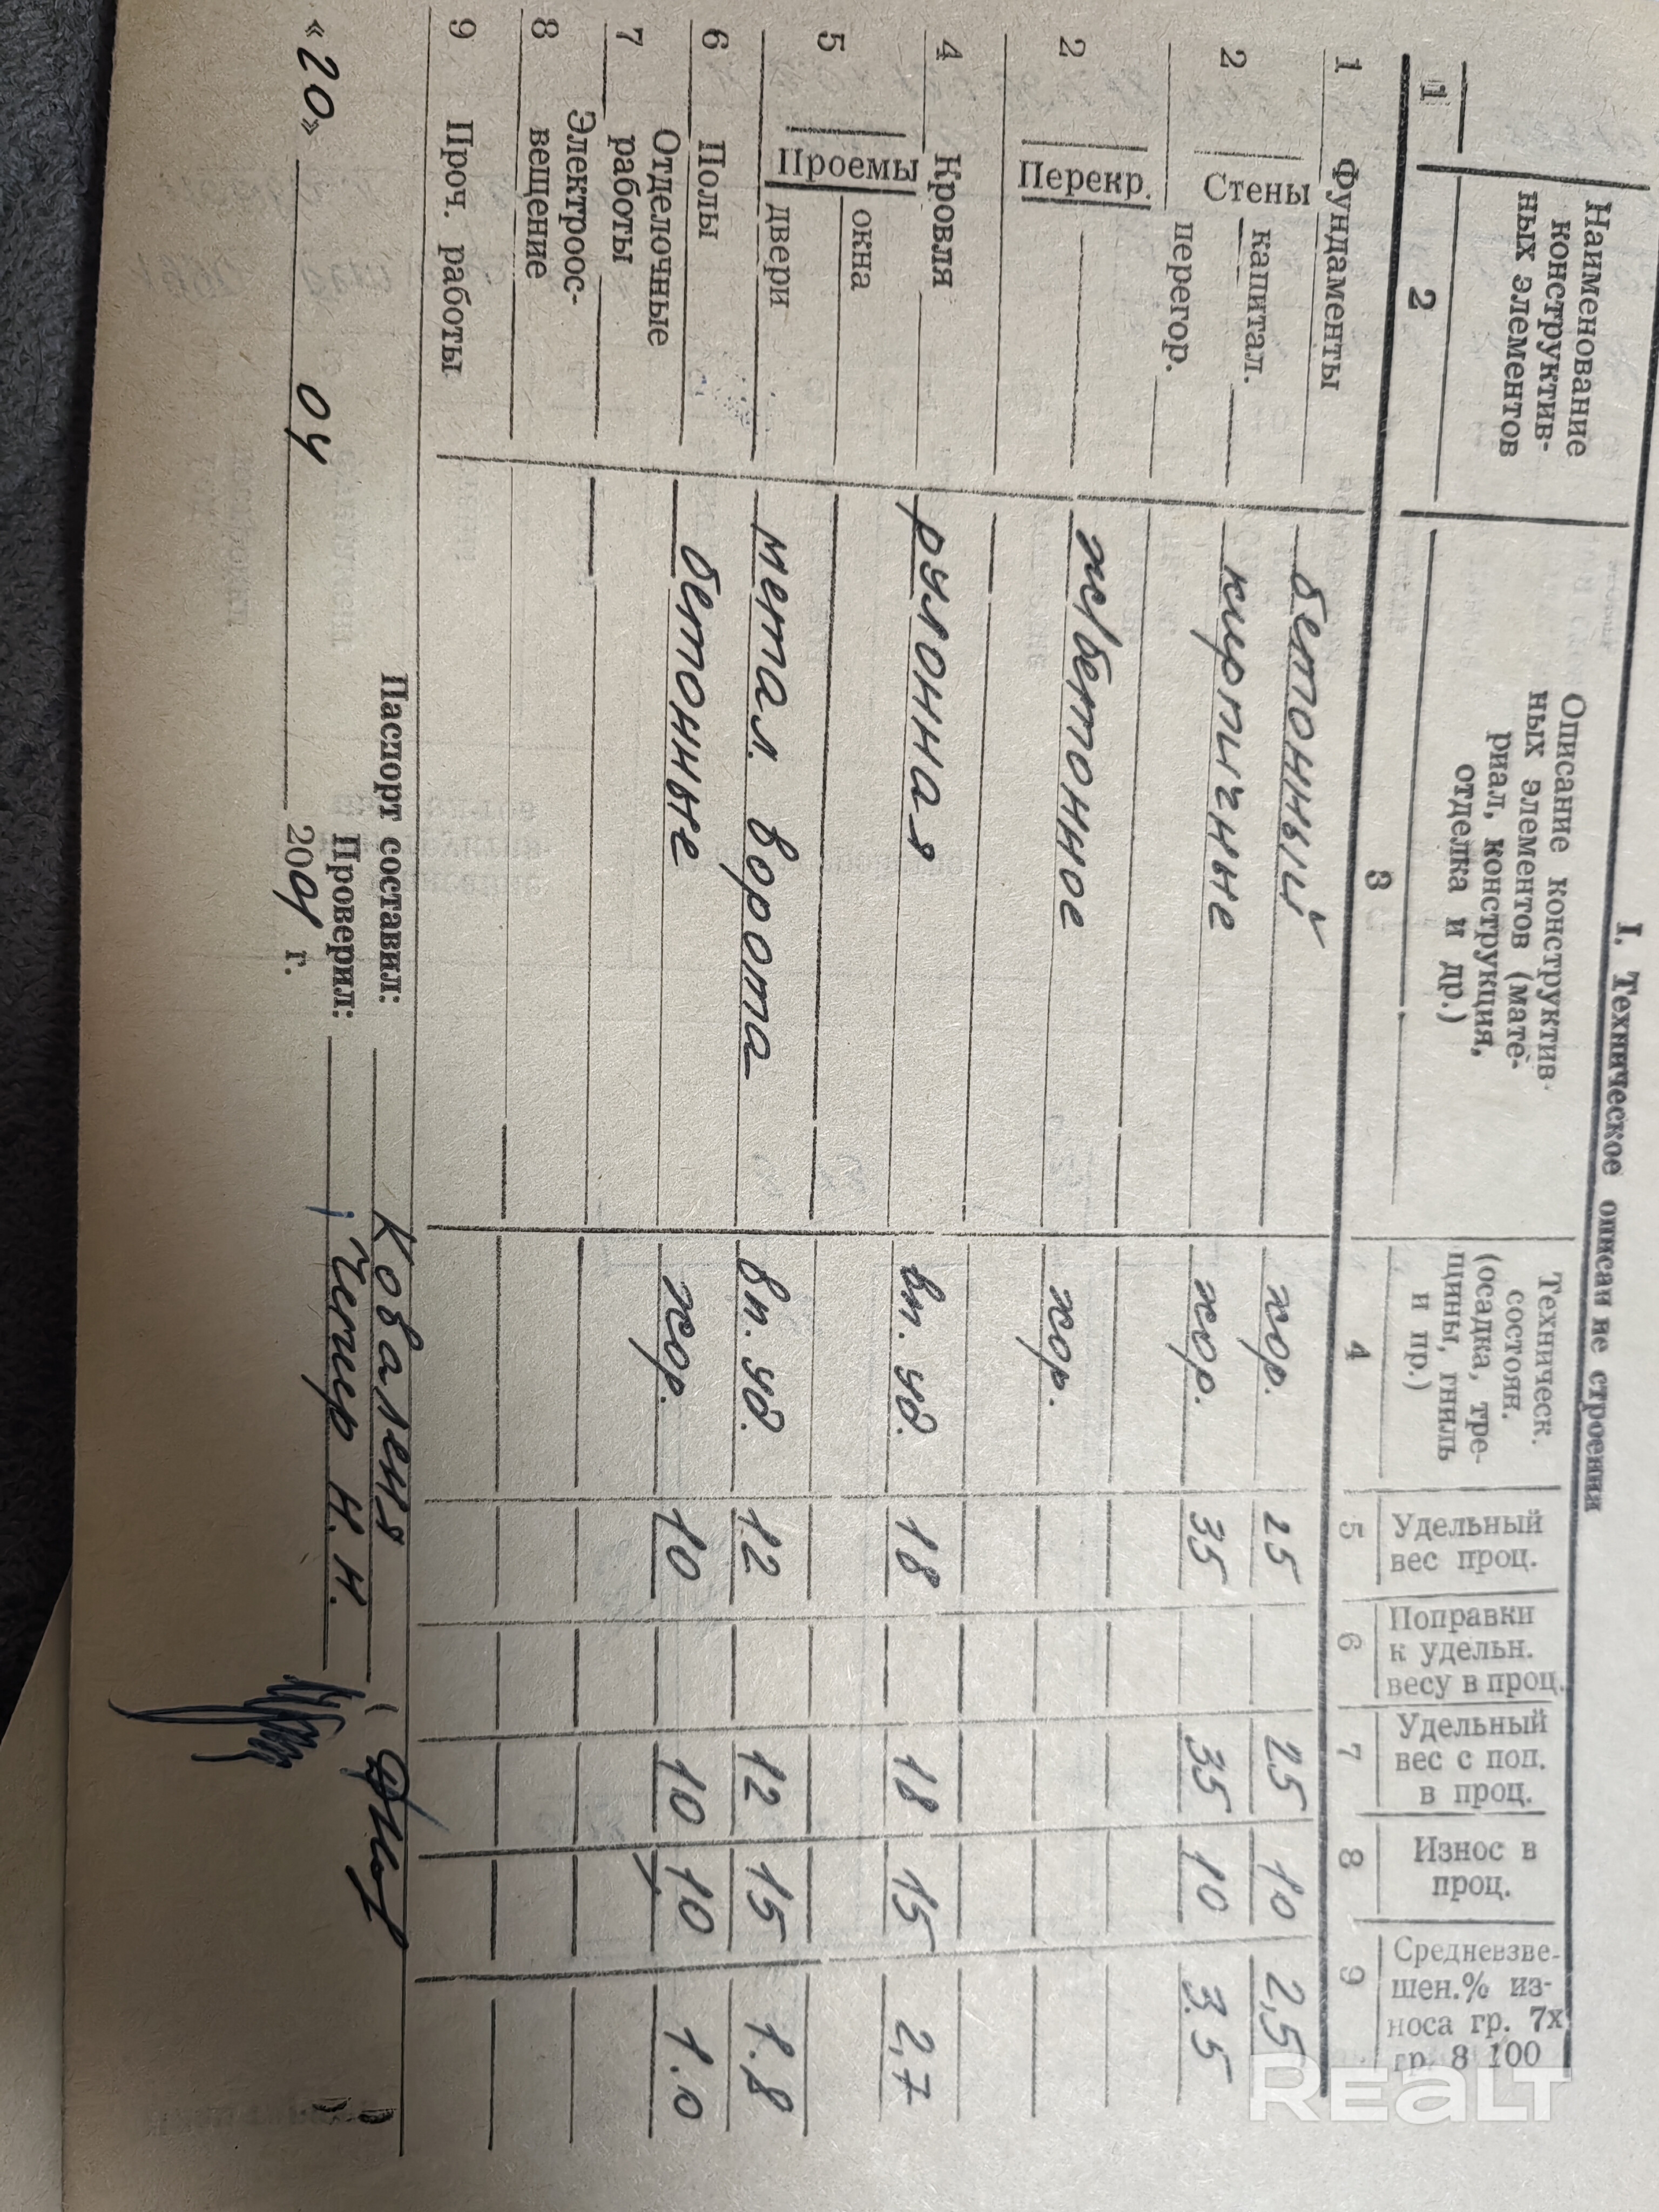 I. Техническое описан не строения
1
Наименование
конструктив-
ных элементов
Описание конструктив-
ных элементов (мате-
риал, конструкция,
отделка и др.)
Техническ.
состоян.
(осадка, тре-
щины, гниль
и пр.)
Удельный
вес проц.
Поправки
к удельн.
весу в проц.
Удельный
вес с поп.
в проц.
Износ в
проц.
Средневзве-
шен.% из-
носа гр. 7х
гр. 8 100
2 3 4 5 6 7 8 9
1 Фундаменты бетонный хор. 25 25 10 2,5
2 Стены капитал. кирпичные хор. 35 35 10 3.5
перегор.
2 Перекр. ж/бетонное хор.
4 Кровля рулонная вп. уд. 18 18 15 2,7
5 Проемы окна
двери метал. ворота вп. уд. 12 12 15 1.8
6 Полы бетонные хор. 10 10 10 1.0
7 Отделочные
работы
8 Электроос-
вещение
9 Проч. работы
Паспорт составил: Коваленя
Проверил: Чепер Н. Н.
«20» 04 2004 г.
Realt